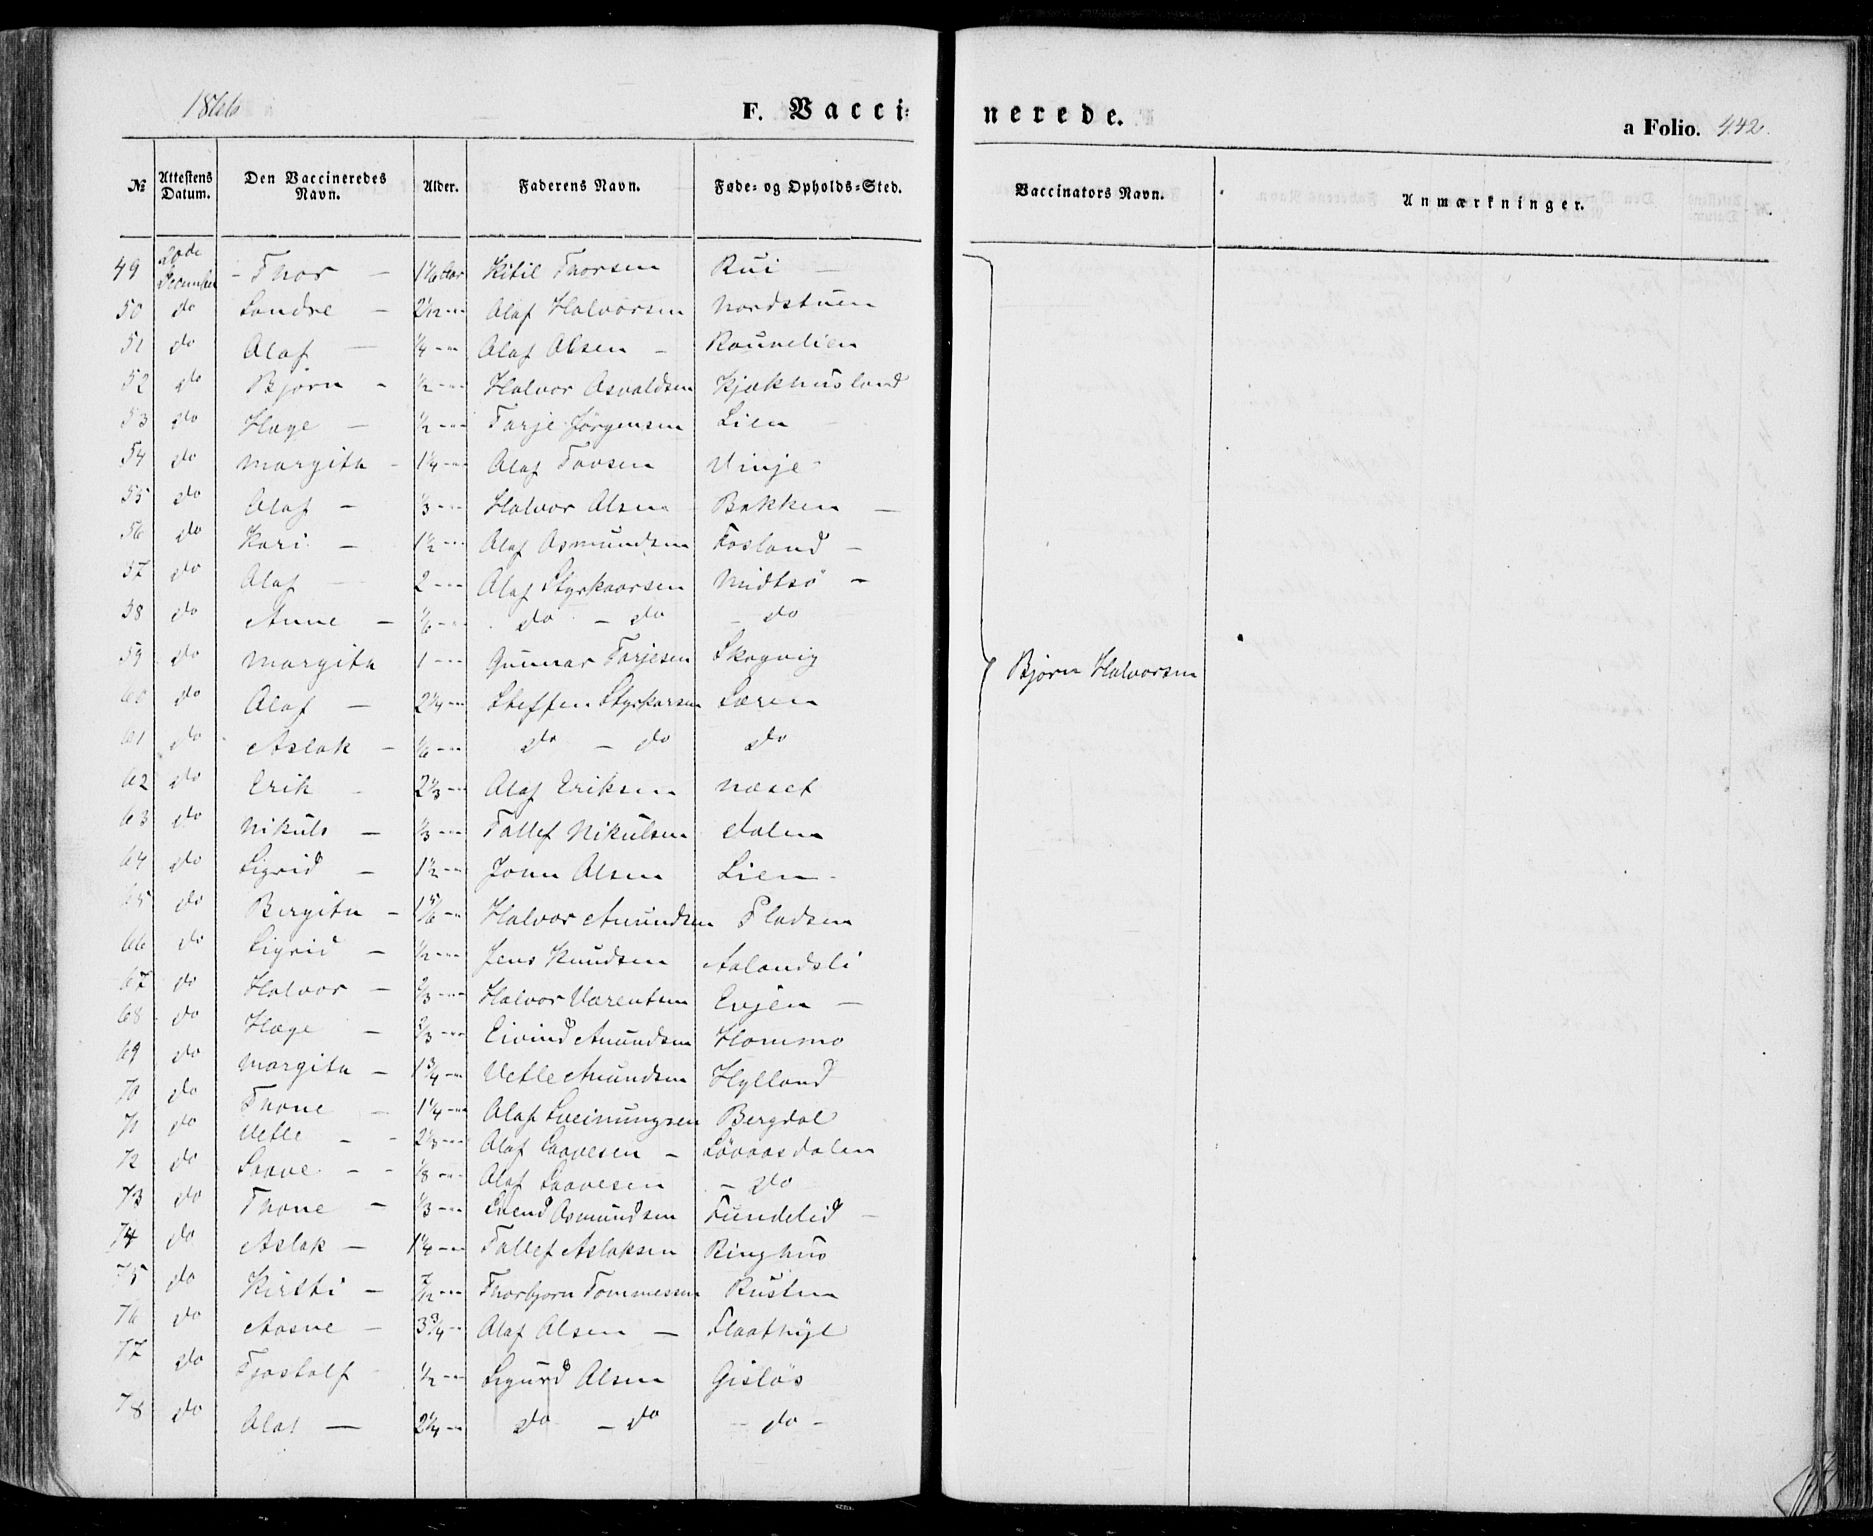 1866
F. Vaccinerede.
a Folio. 442.
№ Attestens Datum. Den Vaccineredes Navn. Alder. Faderens Navn. Føde- og Opholds-Sted. Vaccinators Navn. Anmærkninger.
49 20de December - Thor - 1 1/6 Aar Kitil Thorsen Rui -
50 do Sondre - 2 1/12 -"- Olaf Halvorsen Nordstuen
51 do Olaf - 1/4 -"- Olaf Olsen - Raunelien
52 do Bjørn - 1/2 -"- Halvor Asvaldsen Kjækhusland
53 do Hæge - 1/2 -"- Tarje Jørgensen Lien -
54 do Margita - 1 1/4 -"- Olaf Tovsen Vinje -
55 do Olaf - 1/3 -"- Halvor Olsen Bakken -
56 do Kari - 1 1/2 -"- Olaf Asmundsen Fosland -
57 do Olaf - 2 -"- Olaf Styrkaarsen Midtsø -
58 do Anne - 1/6 -"- do - do - do
59 do Margita 1 -"- Gunnar Tarjesen Skogvig
60 do Olaf - 2 1/4 -"- Steffen Styrkarsen Søren
Bjørn Halvorsen
61 do Aslak - 1/6 -"- do - do do
62 do Erik - 2 1/3 -"- Olaf Eriksen Næset
63 do Nikuls - 1/3 -"- Tallef Nikulsen Dalen
64 do Sigrid - 1 1/2 -"- Jonn Olsen Lien -
65 do Birgita - 1 5/6 -"- Halvor Amundsen Pladsen
66 do Sigrid - 1/2 -"- Jens Knudsen Aalandsli
67 do Halvor - 2/3 -"- Halvor Varentsen Evjen -
68 do Hæge - 2/3 -"- Eivind Amundsen Hommo
69 do Margita - 1 3/4 -"- Vetle Amundsen Hylland
70 do Thone - 1 1/4 -"- Olaf Sveinungsen Bergdal
71 do Vetle - - 2 1/3 -"- Olaf Saavesen - Løvaasdalen
72 do Saave - - 1/8 -"- Olaf Saavesen - do
73 do Thone - 1/3 -"- Svend Asmundsen Tundelid -
74 do Aslak - 1 1/4 -"- Tallef Aslaksen Ringhus
75 do Kirsti - 7/12 -"- Thorbjørn Tommessen Rusten
76 do Aasne - 3 3/4 -"- Olaf Olsen - Flaathyl
77 do Tjostolf - 1/2 -"- Sigurd Olsen Gisløs
78 do Olaf - 2 1/4 -"- do - do - do -